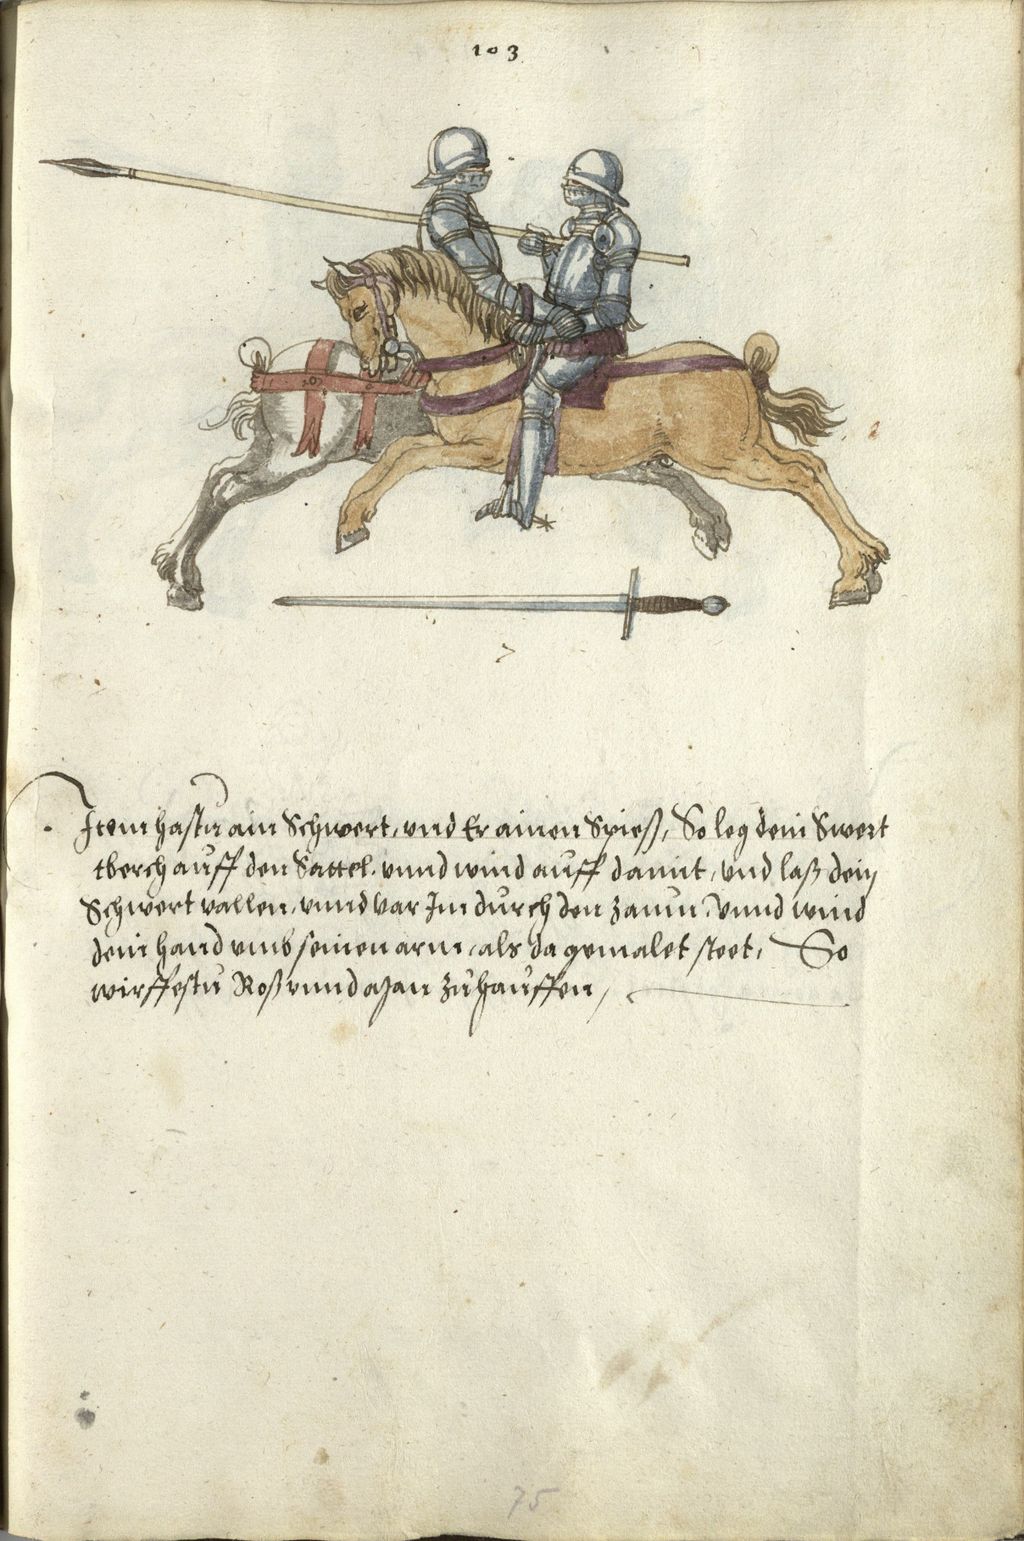 103
Item hastu ain Schwert, vnd Er ainen Spieß, So leg dein Swert
tberch auff den Sattel. vnnd wind auff damit, vnd laß dein
Schwert vallen, vnnd var Im durch den zaum, Vnnd wind
dein hand vmb seinen arm, als da gemalet steet, So
wirffestu Roß vnnd Man zuhauffen,
75